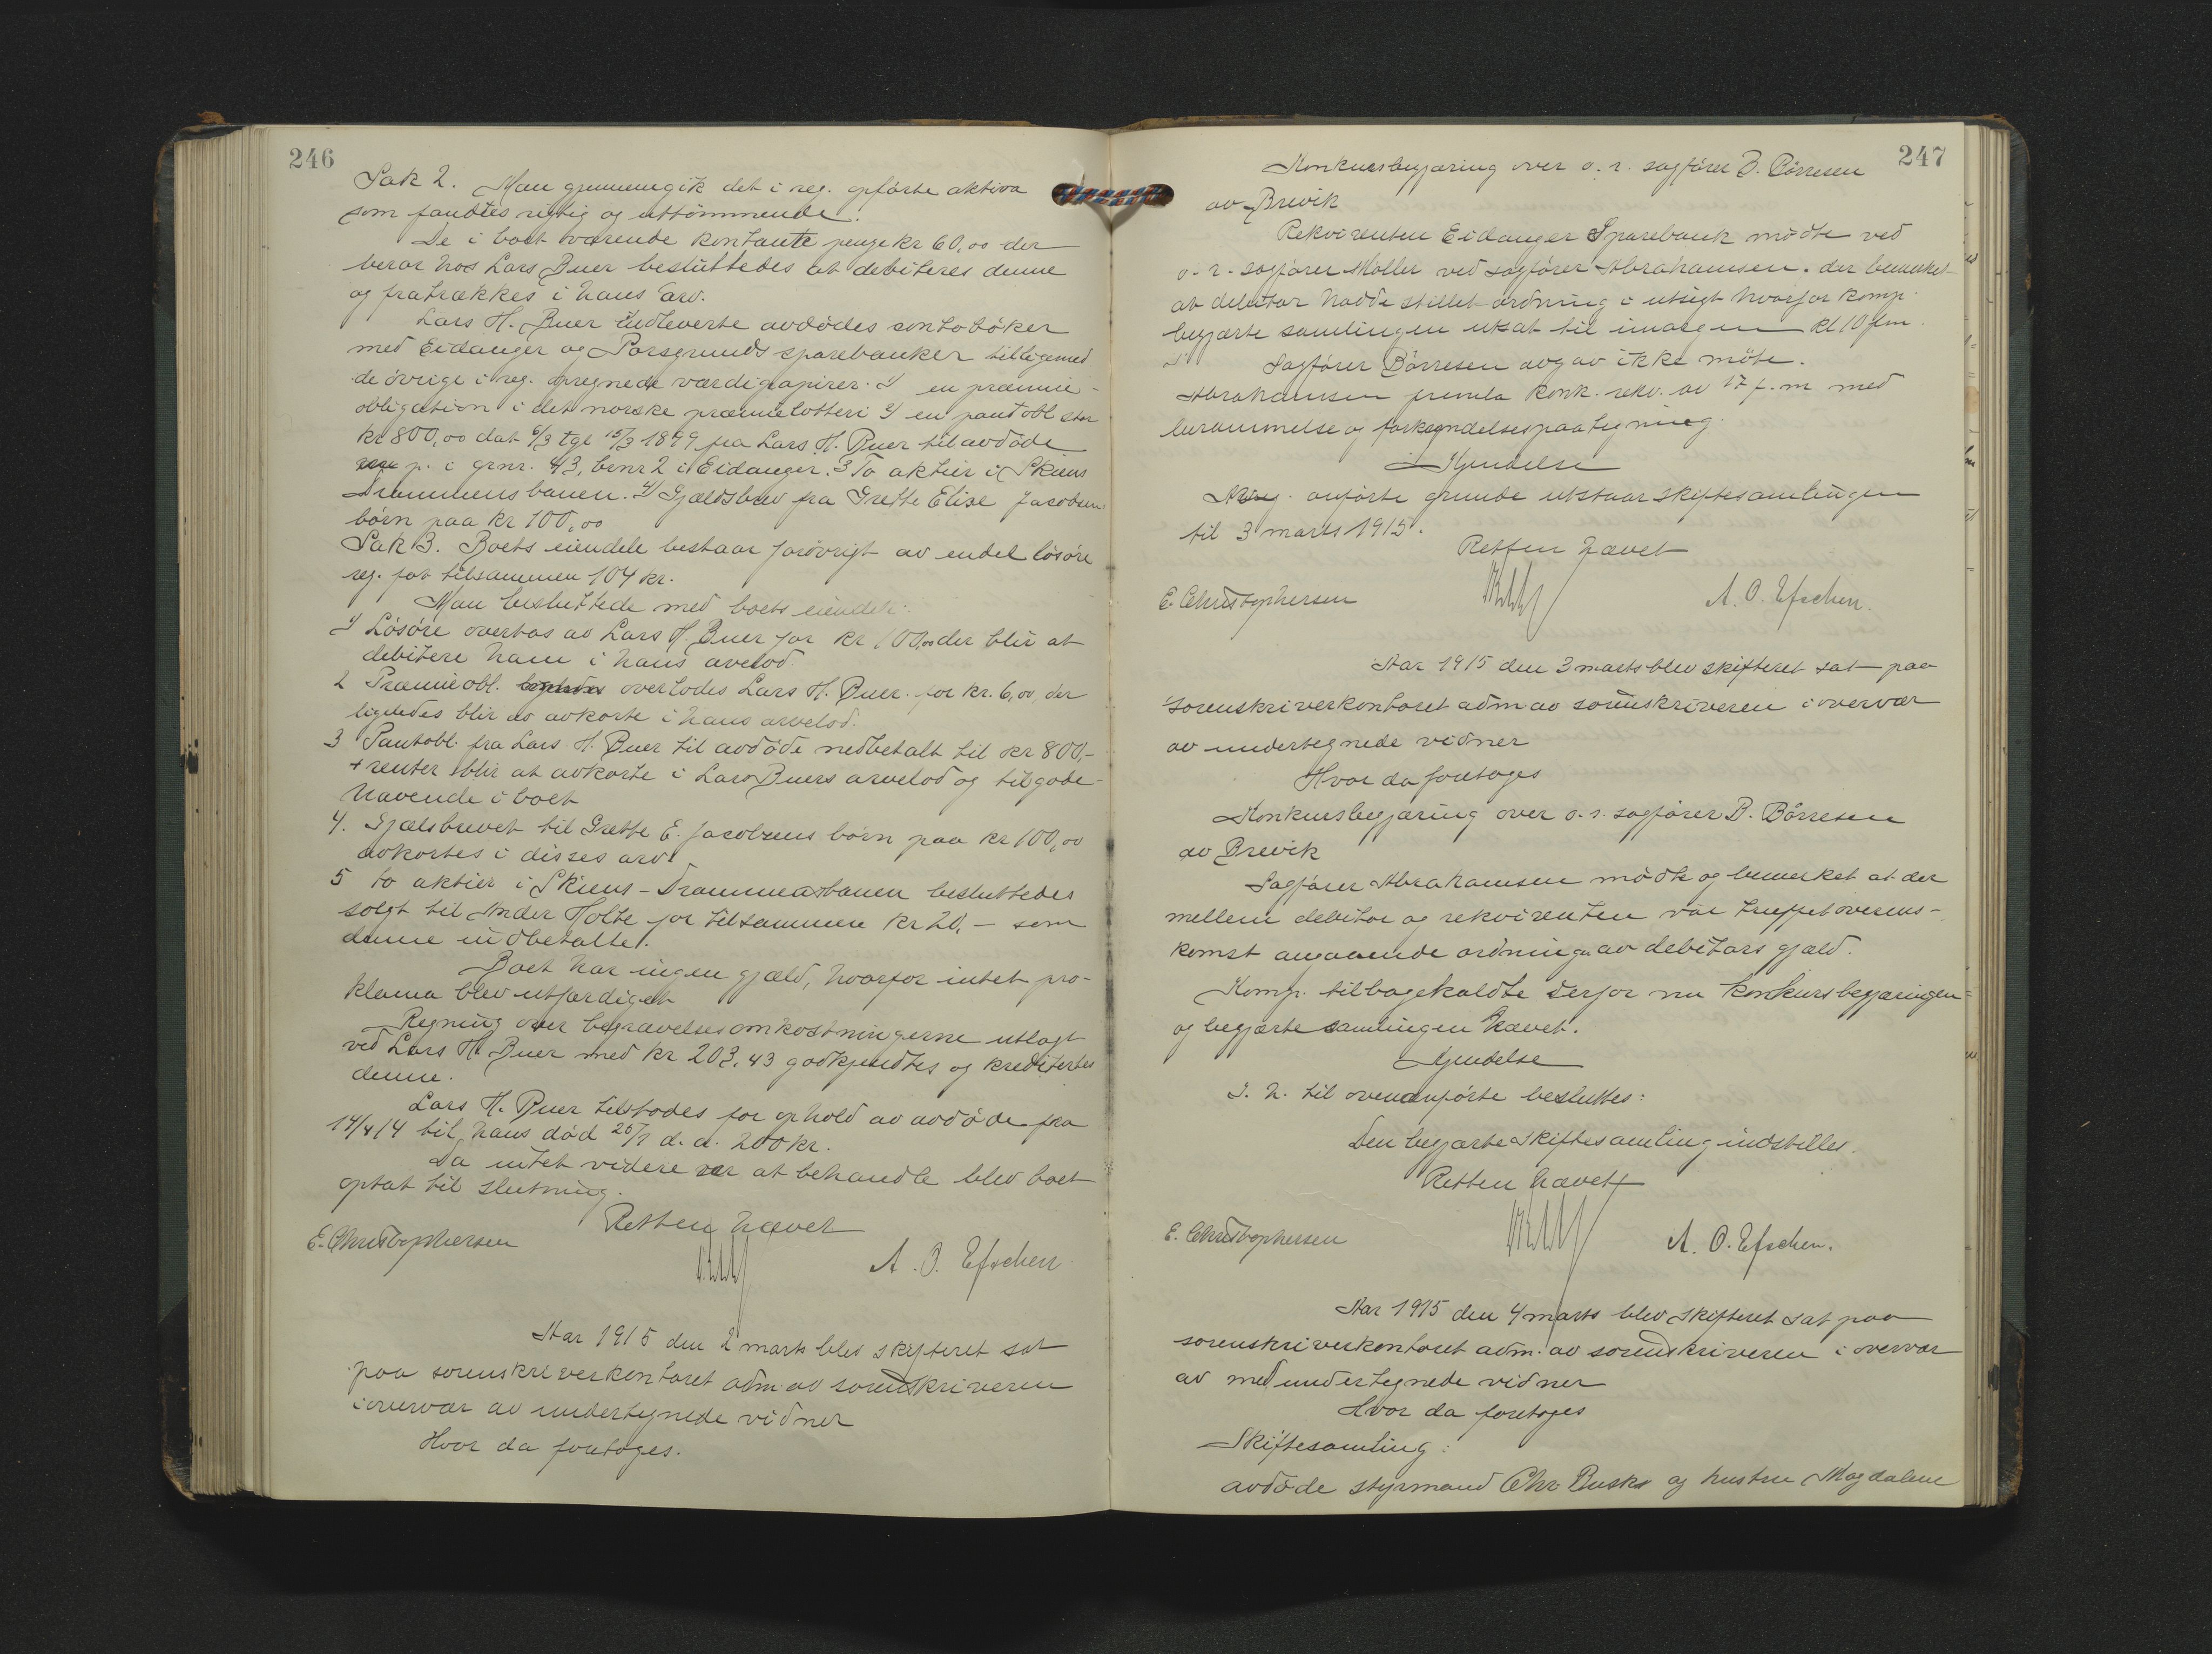 246
Sak 2. Man gjennemgik det i reg. opførte aktiva
som fandtes rigtig og uttömmende.
De i boet værende kontante penge kr 60,00 der
beror hos Lars Buer besluttedes at debiteres denne
og fratrækkes i hans arv.
Lars H. Buer indleverte avdödes contoböker
med Eidanger og Porsgrunds sparebanker tilligemed
de övrige i reg. opregnede værdipapirer. 1) en præmie-
obligation i det norske præmielotteri 2) en pantobl stor
kr 800,00 dat 6/3 tgl 15/3 1899 fra Lars H. Buer til avdöde
p. i grnr. 43, brnr 2 i Eidanger. 3 To aktier i Skiens
Drammensbanen. 4) Gjældsbrev fra Grethe Elise Jacobsens
börn paa kr 100,00
Sak 3. Boets eiendele bestaar forövrigt av endel lösöre
reg. for tilsammen 104 kr.
Man besluttede med boets eiendele:
1) Lösöre overtas av Lars H. Buer for kr 100,00 der blir at
debitere ham i hans arvelod.
2 Præmieobl. overlodes Lars H. Buer for kr. 6,00, der
ligeledes blir av avkorte i hans arvelod.
3 Pantobl. fra Lars H. Buer til avdöde nedbetalt til kr 800,-
+ renter blir at avkorte i Lars Buers arvelod og tilgode-
havende i boet
4. Gjælsbrevet til Grethe E. Jacobsens börn paa kr 100,00
avkortes i disses arv.
5 to aktier i Skiens-Drammensbanen besluttedes
solgt til Ander Holte for tilsammen kr 20,- som
denne indbetalte.
Boet har ingen gjæld, hvorfor intet pro-
klama blev utfærdiget
Regning over begravelsesomkostningerne utlagt
ved Lars H. Buer med kr 203,43 godkjendtes og krediteres
denne.
Lars H. Buer tilstodes for ophold av avdöde fra
14/4 14 til hans död 25/1 d. a. 200 kr.
Da intet videre var at behandle blev boet
optat til slutning.
Retten hævet
E. Christophersen
A. O. Efschen
Aar 1915 den 2 marts blev skifteret sat
paa sorenskriverkontoret adm. av sorenskriveren
i overvær av undertegnede vidner
Hvor da foretoges.
247
Konkursbegjæring over o. r. sagfører B. Börresen
av Brevik
Rekvirenten Eidanger Sparebank mödte ved
o. r. sagfører Møller ved sagfører Abrahamsen. der bemerket
at debitor hadde stillet ordning i utsigt hvorfor komp.
begjærte samlingen utsat til imorgen kl 10 fm.
Sagfører Börresen avgav ikke möte.
Abrahamsen fremla konk. rekv. av 17 f. m med
berammelse og forkyndelsespaategning.
Kjendelse
anførte grunde utstaar skiftesamlingen
til 3 marts 1915.
Retten hævet
E. Christophersen
A. O. Efschen.
Aar 1915 den 3 marts blev skifteret sat paa
sorenskriverkontoret adm av sorenskriveren i overvær
av undertegnede vidner
Hvor da foretoges
Konkursbegjæring over o. r. sagfører B. Börresen
av Brevik
Sagfører Abrahamsen mödte og bemerket at der
mellem debitor og rekvirenten var truffet overens-
komst angaaende ordningen av debitors gjæld.
Komp. tilbagekaldte derfor nu konkursbegjæringen
og begjærte samlingen hævet.
Kjendelse
I. h. til ovenanförte besluttes:
Den begjærte skiftesamling indstilles.
Retten hævet
E. Christophersen
A. O. Efschen.
Aar 1915 den 4 marts blev skifteret sat paa
sorenskriverkontoret adm. av sorenskriveren i overvær
av medundertegnede vidner
Hvor da foretoges
Skiftesamling:
avdöde styrmand Chr Busk og hustru Magdalene